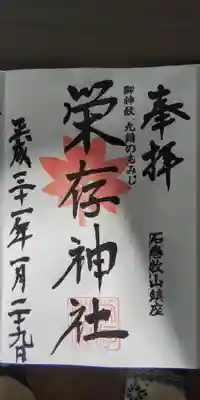 奉拝
石巻牧山鎮座
御神紋 九曜のもみじ
栄存神社
平成三十一年一月二十九日